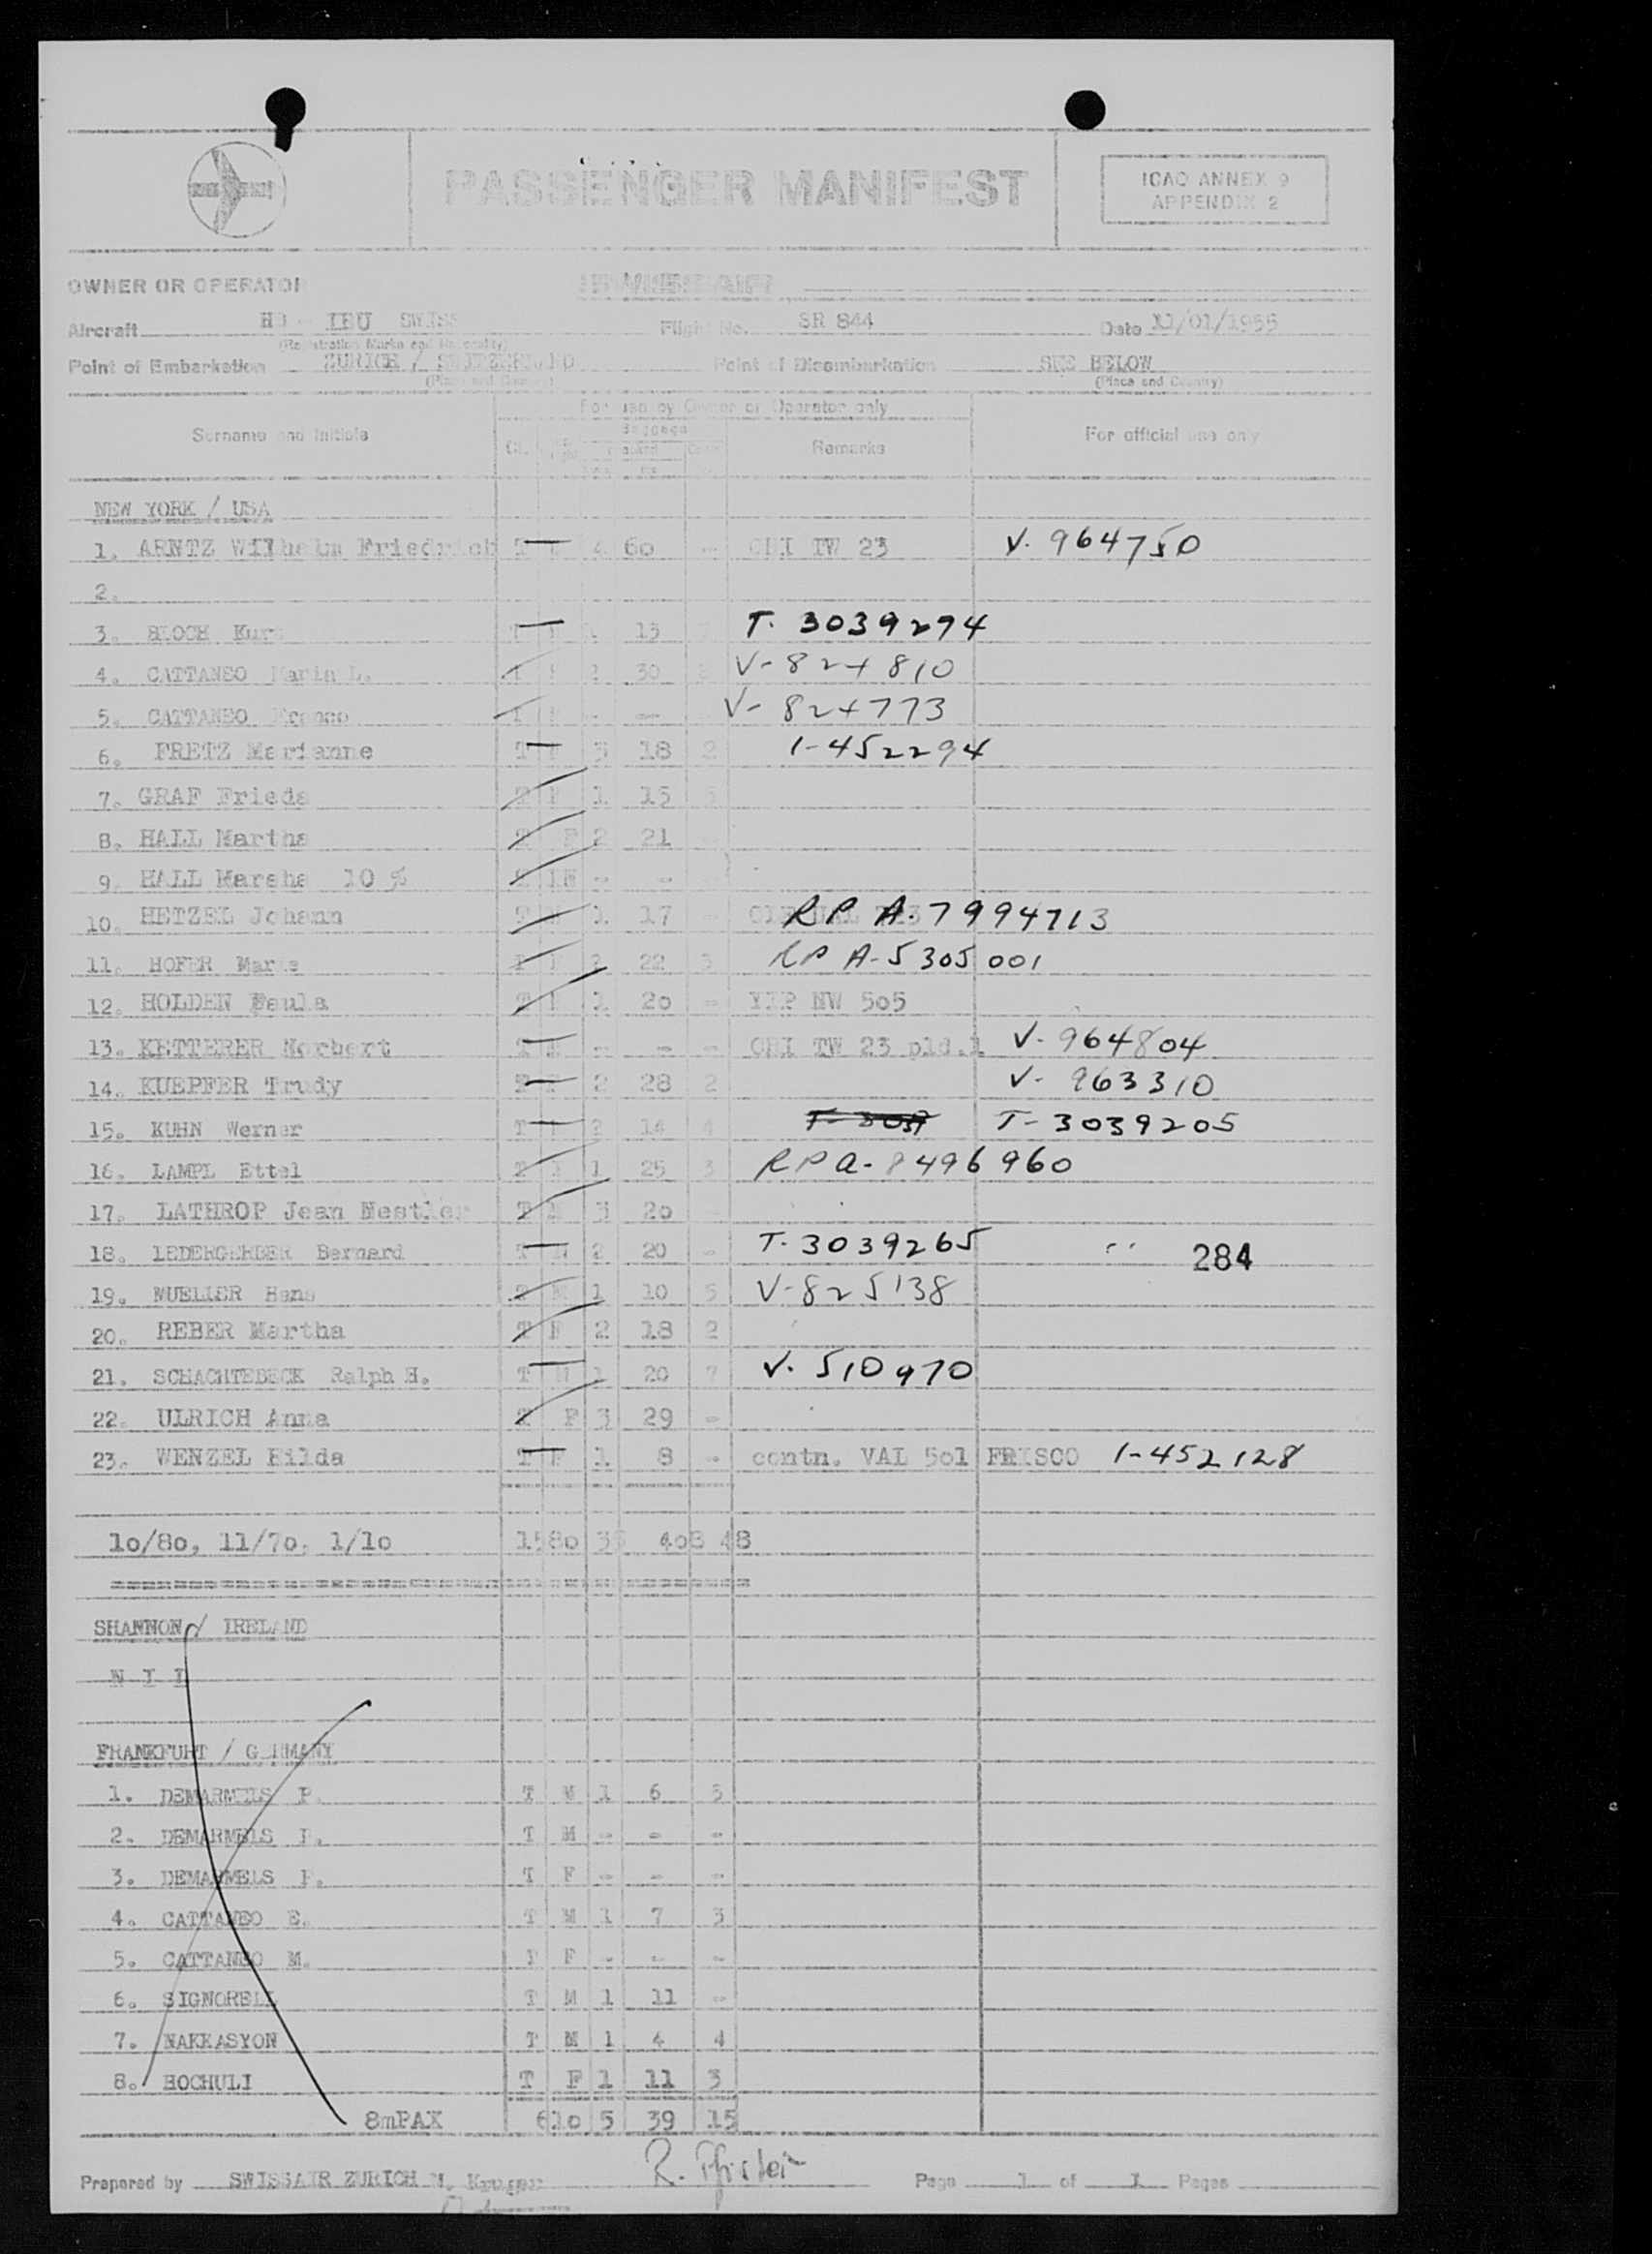 PASSENGER MANIFEST
ICAO ANNEX 9
APPENDIX 2
OWNER OR OPERATOR
Aircraft HB - IBU SWISS Flight No. SR 844 Date 11/01/1955
(Registration Marks and Nationality)
Point of Embarkation ZURICH / SWITZERLAND Point of Disembarkation SEE BELOW
(Place and Country) (Place and Country)
For use by Owner or Operator only
Surname and Initials Baggage Remarks For official use only
NEW YORK / USA
1. ARNTZ Wilhelm Friedrich T 4 60 - CHI TW 23 V. 964750
2.
3. BLOCH Kurt T 15 T. 3039294
4. CATTANEO Maria L. 2 30 V-824810
5. CATTANEO Franco - - V-824773
6. FRETZ Marianne T F 3 18 2 1-452294
7. GRAF Frieda T F 1 15 5
8. HALL Martha T F 2 21 -
9. HALL Marsha 10 % - -
10. HETZEL Johann T 1 17 - RP A. 7994713
11. HOFER Marie 2 22 3 RP A-5305001
12. HOLDEN Paula T 1 20 - NW 505
13. KETTERER Norbert T M - - - CHI TW 23 pld.1 V. 964804
14. KUEPFER Trudy T F 2 28 2 V- 963310
15. KUHN Werner T 2 14 4 T-3039 T-3039205
16. LAMPL Ettel 1 25 3 RP a-8496960
17. LATHROP Jean Nestler T 3 20
18. LEDERGERBER Bernard T M 2 20 - T. 3039265
284
19. MUELLER Hans T M 1 10 5 V-825138
20. REBER Martha T F 2 18 2
21. SCHACHTEBECK Ralph H. T M 1 20 7 V. 510970
22. ULRICH Anna T F 3 29 -
23. WENZEL Hilda T F 1 8 - contn. VAL 501 FRISCO 1-452128
10/80, 11/70, 1/10 1580 408 48
SHANNON / IRELAND
N I L
FRANKFURT / GERMANY
1. DEMARMELS P. T M 1 6 5
2. DEMARMELS T M - - -
3. DEMARMELS T F - - -
4. CATTANEO E. T M 1 7 3
5. CATTANEO M. T F - - -
6. SIGNORELL T M 1 11 -
7. NAKKASYON T M 1 4 4
8. BOCHULI T F 1 11 3
8mPAX 610 5 39 15
Prepared by SWISSAIR ZURICH R. Pfister Page 1 of 1 Pages